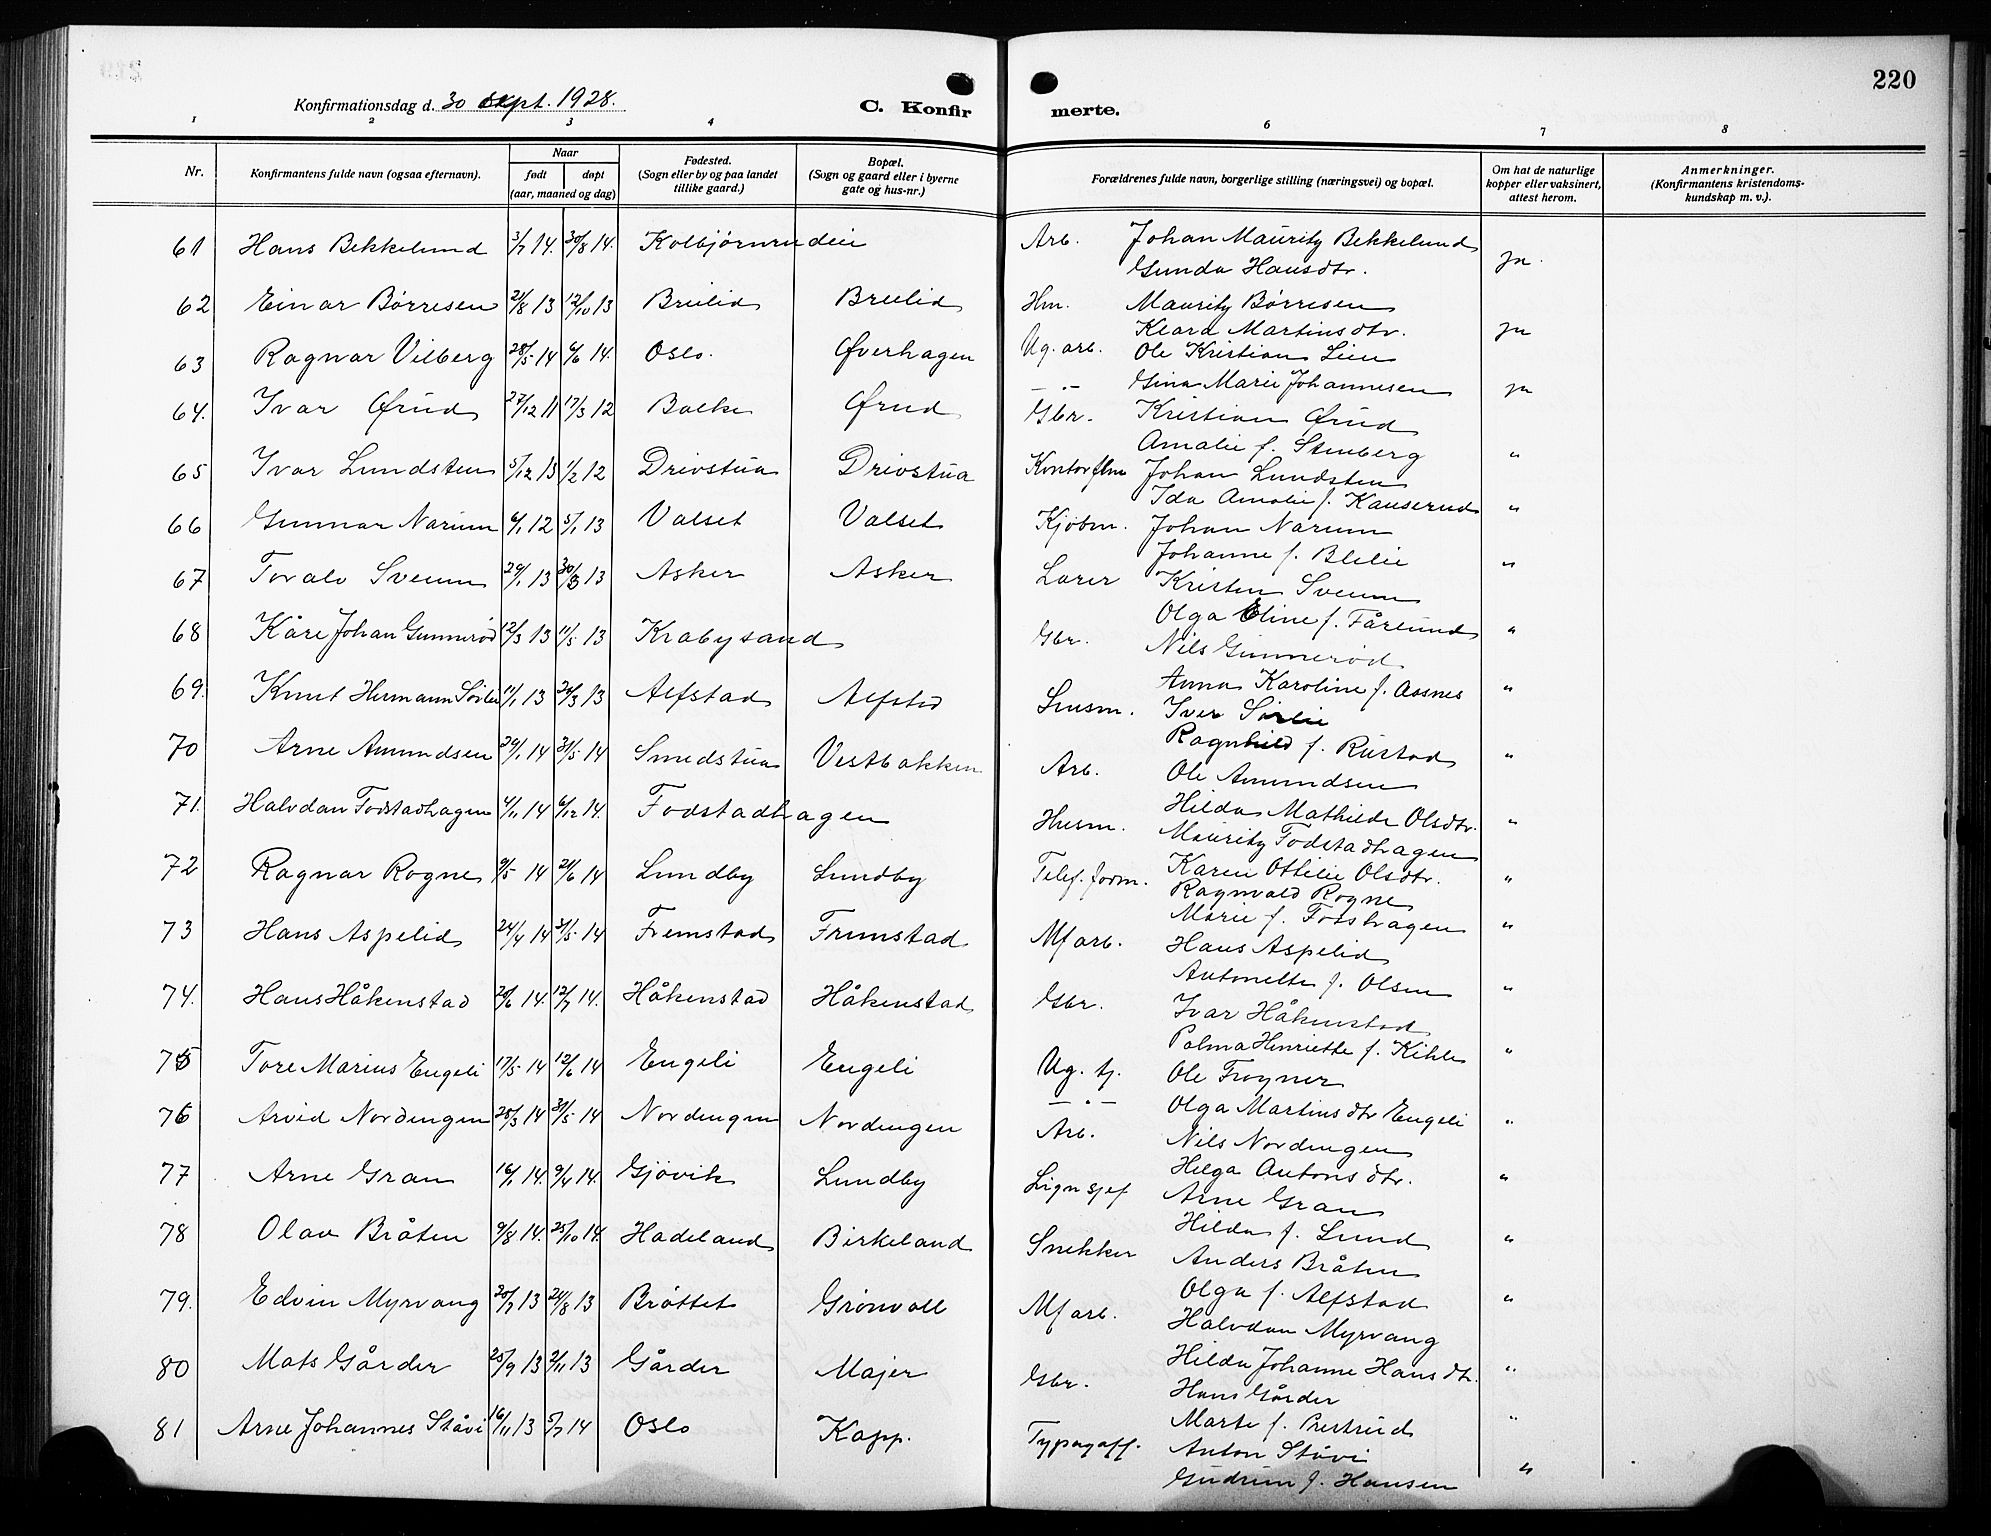 220
Konfirmationsdag d. 30 sept. 1928.
C. Konfirmerte.
1 2 3 4 6 7 8
Nr.
Konfirmantens fulde navn (ogsaa efternavn).
Naar
født døpt
(aar, maaned og dag)
Fødested.
(Sogn eller by og paa landet
tillike gaard.)
Bopæl.
(Sogn og gaard eller i byerne
gate og hus-nr.)
Forældrenes fulde navn, borgerlige stilling (næringsvei) og bopæl.
Om hat de naturlige
kopper eller vaksinert,
attest herom.
Anmerkninger.
(Konfirmantens kristendoms-
kundskap m. v.).
61 Hans Bekkelund 3/7 14. 30/8 14. Kolbjørnrudeie Arb. Johan Mauritz Bekkelund
Gunda Hansdtr. ja.
62 Einar Børresen 21/8 13 12/10 13 Breilid Breilid Hm. Mauritz Børresen
Klara Martinsdtr. ja
63 Ragnar Vilberg 28/5 14 6/6 14. Oslo. Øverhagen Ug. arb. Ole Kristian Lien
— . — Gina Marie Johannesen ja
64. Ivar Ørud 27/12 11 17/3 12 Balke Ørud Gbr. Kristian Ørud
Amalie f. Stenberg "
65 Ivar Lundsten 5/12 13 1/2 12 Drivstua Drivstua Johan Lundsten
Ida Amalie f. Kauserud "
66 Gunnar Narum 6/1 12 5/1 13 Valset Valset Kjøbm. Johan Narum
Johanne f. Blilie "
67 Torolv Sveum 29/1 13 30/3 13 Asker Asker Lærer Kristen Sveum
Olga Eline f. Fårlund "
68 Kåre Johan Gunnerød 12/3 13 11/5 13 Krabysand Gbr. Nils Gunnerød
Anna Karoline f. Aasnes "
69. Knut Hermann Sørlie 11/1 13 24/3 13 Alfstad Alfstad Iver Sørlie
Ragnhild f. Rustad "
70 Arne Amundsen 29/1 14 31/5 14 Smedstua Vestbakken Arb. Ole Amundsen
Hilda Mathilde Olsdtr. "
71. Halvdan Fodstadhagen 4/11 14 6/12 14. Fodstadhagen Husm. Mauritz Fodstadhagen
Karen Ottilie Olsdtr. "
72 Ragnar Rogne 9/5 14 21/6 14 Lundby Lundby Telef. form. Ragnvald Rogne
Marie f. Fodsthagen "
73 Hans Aspelid 24/4 14 31/5 14 Fremstad Fremstad Mf arb. Hans Aspelid
Antonette f. Olsen "
74. Hans Håkenstad 20/6 14. 12/7 14. Håkenstad Håkenstad Gbr. Ivar Håkenstad
Palma Henriette f. Kihle "
75 Tore Marius Engeli 17/5 14 12/6 14 Engeli Engeli Ug. tj. Ole Frogner
— . — Olga Martinsdtr Engeli "
76 Arvid Nordengen 28/3 14 31/5 14 Nordengen Nordengen Arb. Nils Nordengen
Helga Antonsdtr. "
77 Arne Gran 16/1 14. 9/4 14. Gjövik Lundby Arne Gran
Hilda f. Lund "
78 Olav Bråten 9/8 14. 25/10 14. Hadeland Birkeland Snekker Anders Bråten
Olga f. Alfstad "
79. Edvin Myrvang 20/7 13 24/8 13 Bråttet Grönvoll Mf arb. Halvdan Myrvang
Hilda Johanne Hansdtr. "
80 Mats Gårder 25/9 13 2/11 13 Gårder Majer Gbr. Hans Gårder
Marte f. Prestrud "
81 Arne Johannes Ståvi 16/11 13 5/7 14 Oslo Kapp. Typograff. Anton Ståvi
Gudrun f. Hansen "